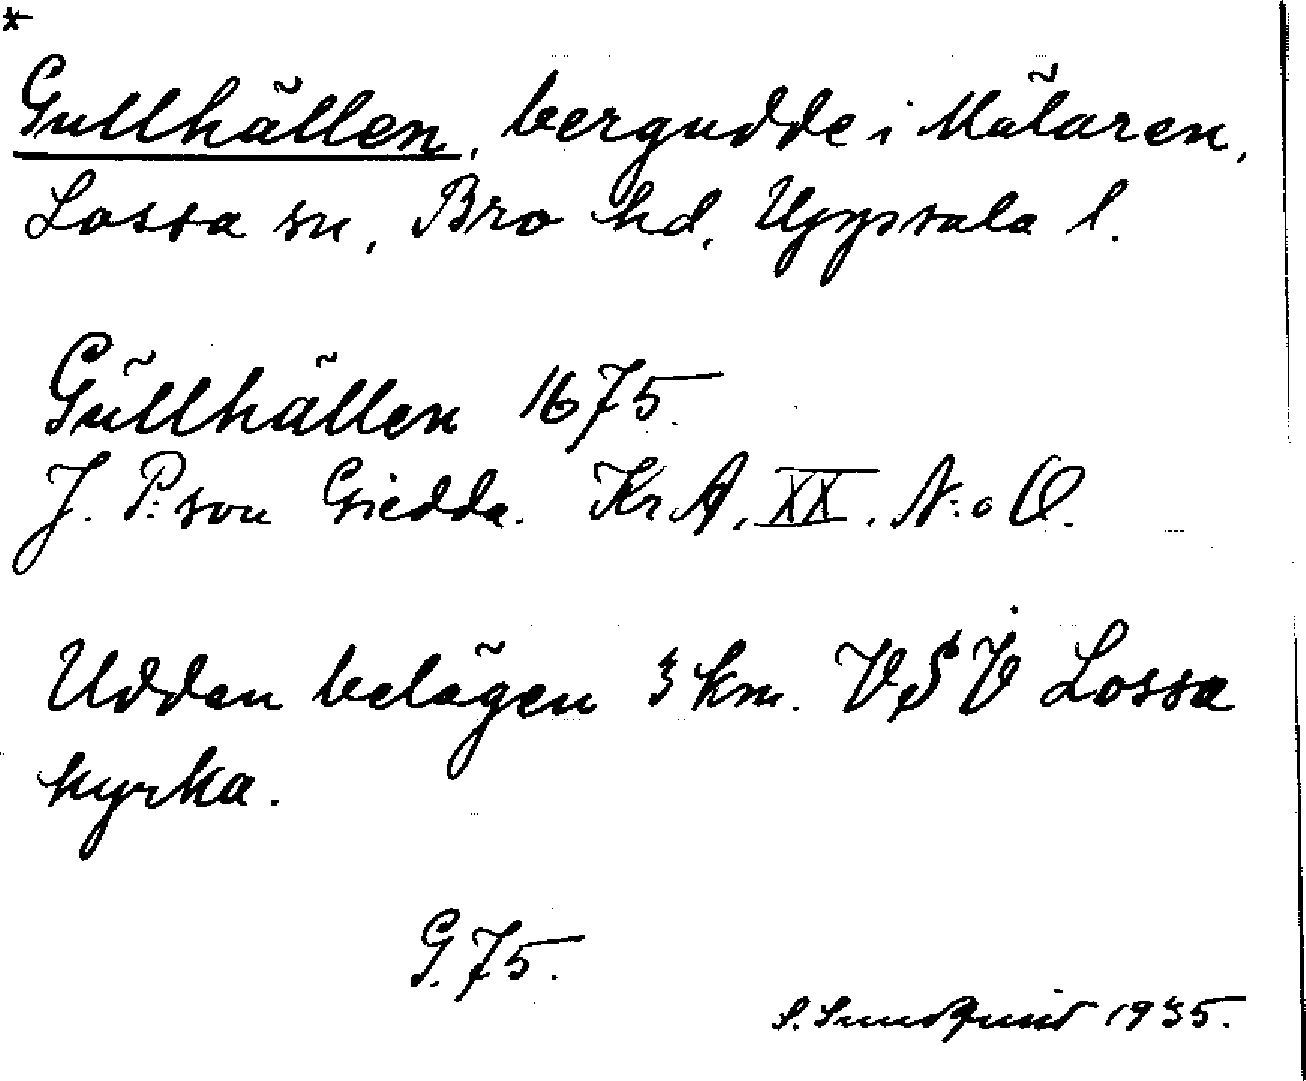 *
Gullhällen, bergudde i Mälaren,
Lossa sn, Bro hd, Uppsala l.
Gullhällen 1675.
J. P:son Giedda. KrA. XX. N:o O.
Udden belägen 3 km. VSV Lossa
kyrka.
G. 75.
S. Sundqvist 1935.